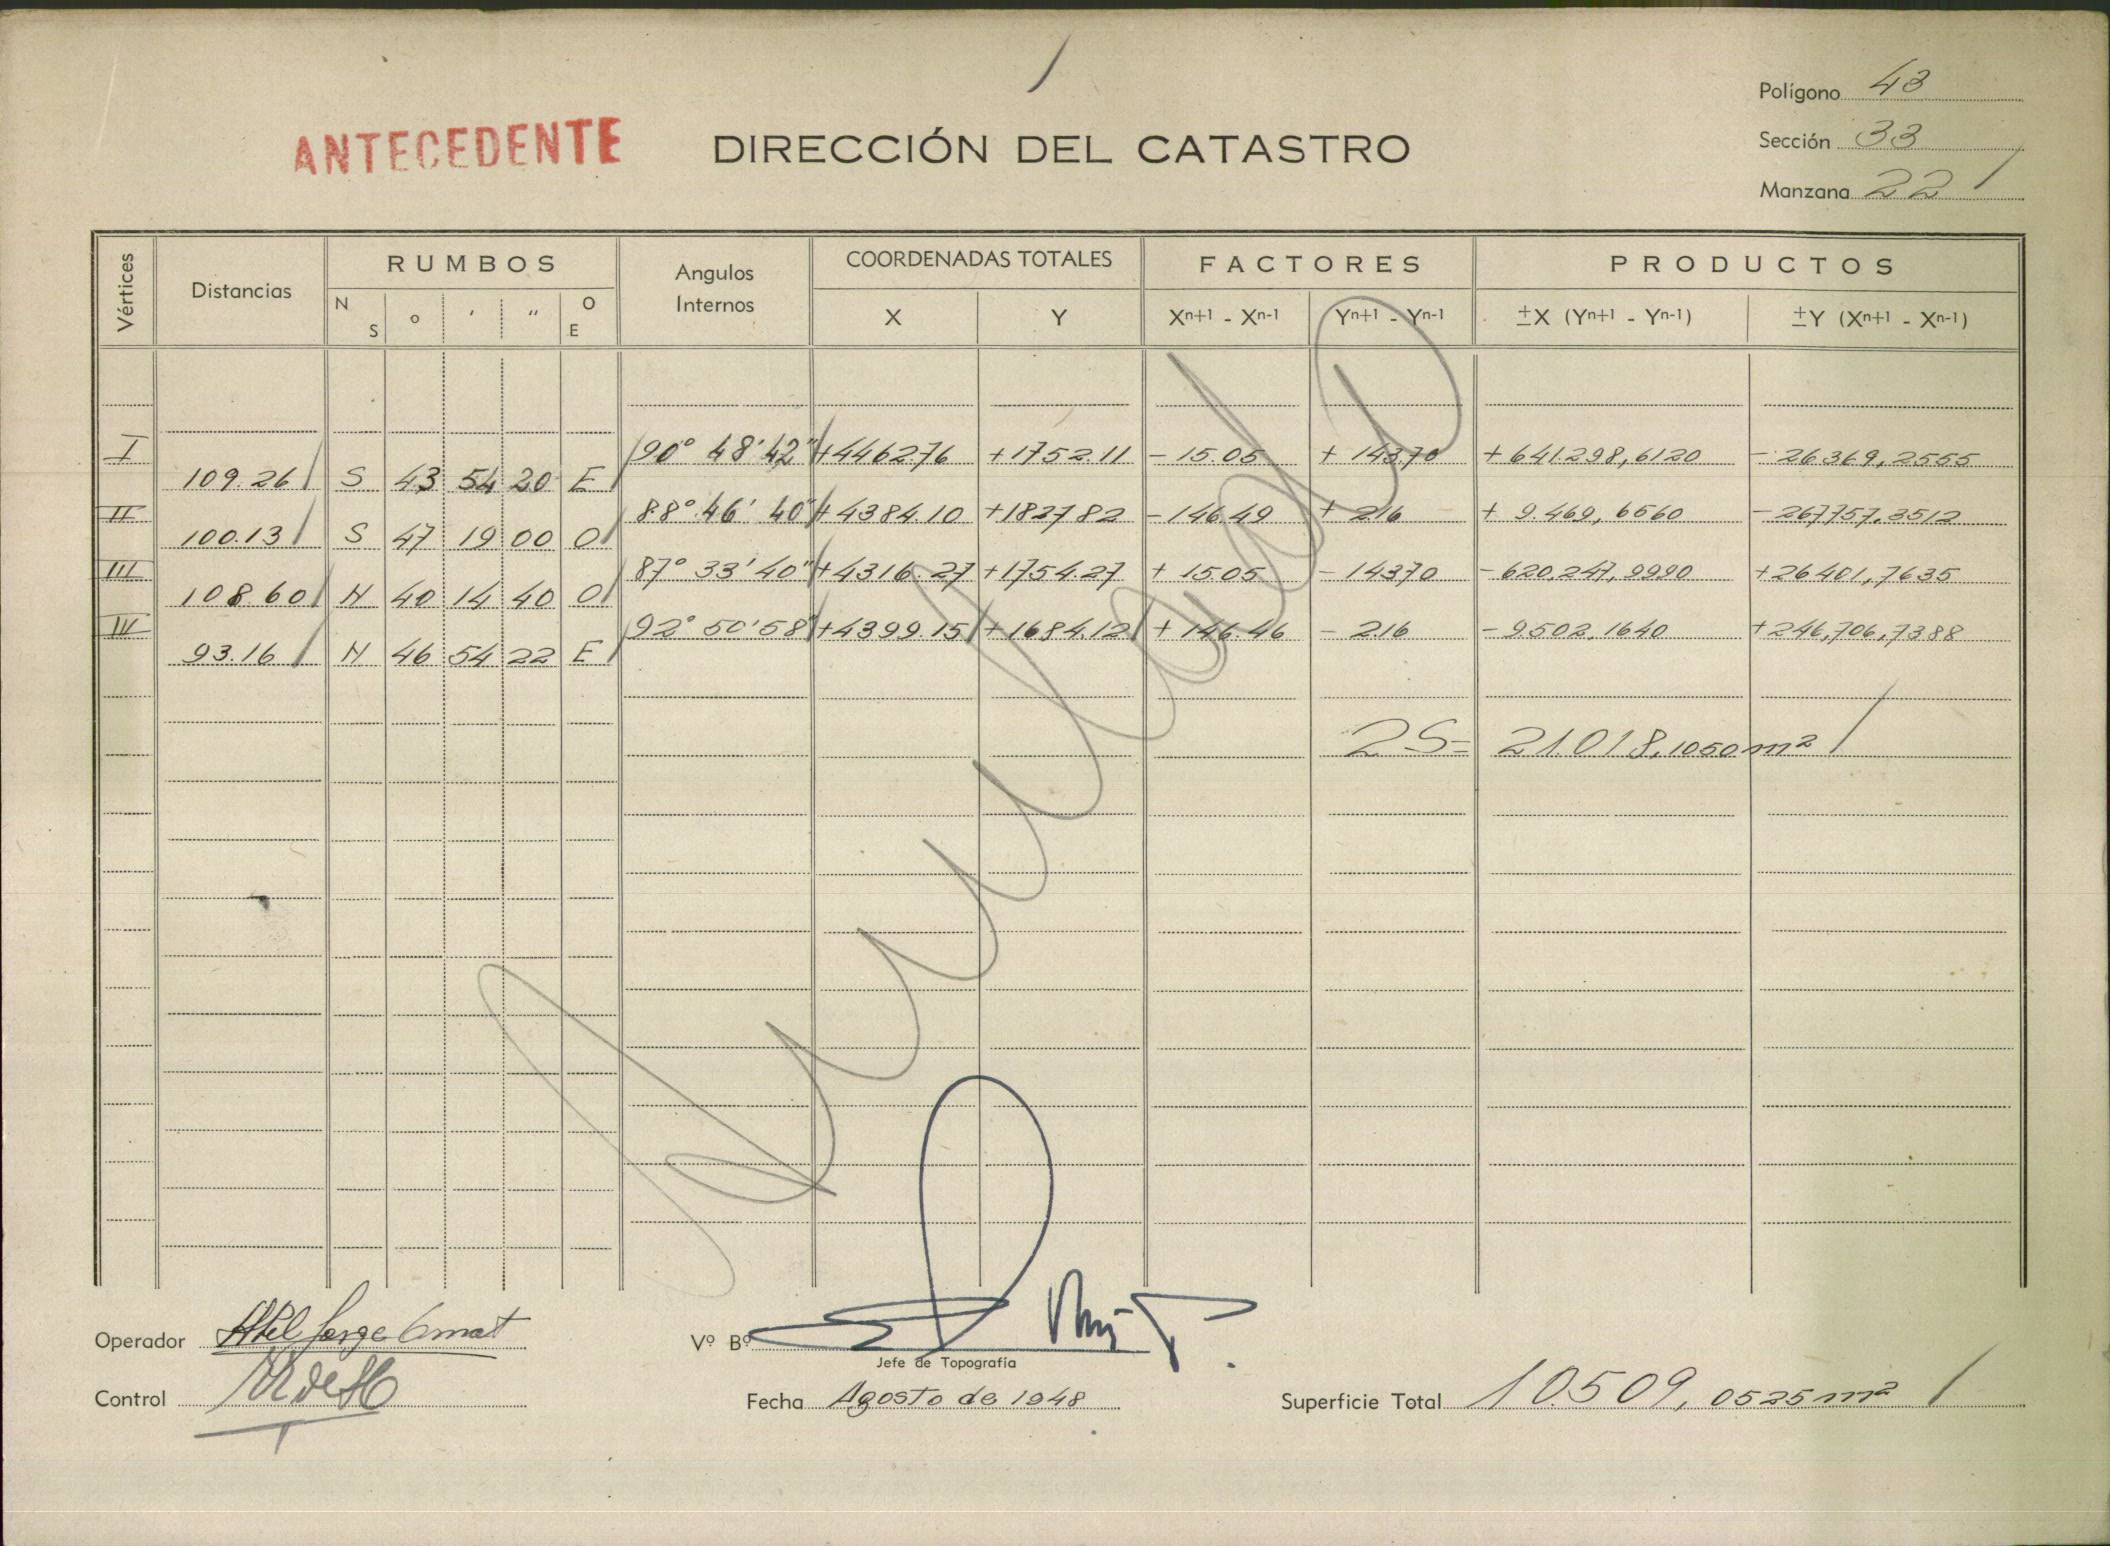 Polígono 43
ANTECEDENTE DIRECCIÓN DEL CATASTRO
Sección 33
Manzana 22
Vértices Distancias RUMBOS Angulos Internos COORDENADAS TOTALES FACTORES PRODUCTOS
N S ° ' " O E X Y Xn+1 - Xn-1 Yn+1 - Yn-1 ±X (Yn+1 - Yn-1) ±Y (Xn+1 - Xn-1)
I 90° 48' 42" +4462.76 +1752.11 - 15.05 + 143.70 +641.298,6120 - 26369,2555
109.26 S 43 54 20 E
II 88° 46' 40" +4384.10 +1827.82 -146.49 + 2.16 + 9.469,6560 -267757,3512
100.13 S 47 19 00 O
III 87° 33' 40" +4316.27 +1754.27 + 15.05 - 143.70 -620.247,9990 +26401,7635
108.60 N 40 14 40 O
IV 92° 50' 58" +4399.15 +1684.12 + 146.46 - 2.16 -9.502,1640 +246,706,7388
93.16 N 46 54 22 E
2S= 21.018,1050 m²
Anulado
Operador Abel Jorge
Vº Bº
Jefe de Topografía
Control
Fecha Agosto de 1948
Superficie Total 10.509,0525 m²